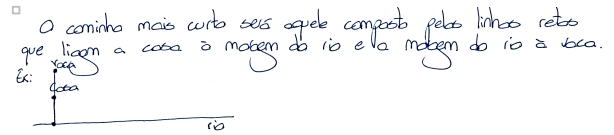 O caminho mais curto será aquele composto pelas linhas retas
que ligam a casa à margem do rio e a margem do rio à vaca.
Ex:
vaca
casa
rio